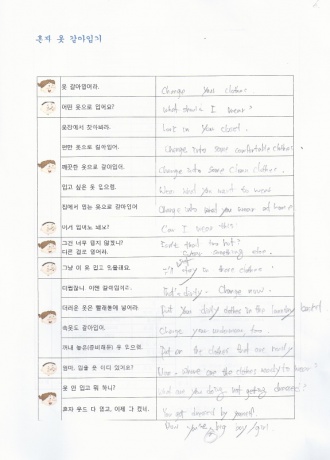 혼자 옷 갈아입기
옷 갈아입어라.
Change your clothes.
어떤 옷으로 입어요?
What should I wear?
옷장에서 찾아봐라.
Look in your closet.
편한 옷으로 갈아입어.
Change into some comfortable clothes.
깨끗한 옷으로 갈아입어.
Change into some clean clothes.
입고 싶은 옷 입으렴.
what you want to wear
집에서 입는 옷으로 갈아입어
Change into what you wear at home
이거 입어도 돼요?
Can I wear this
그건 너무 덥지 않겠니?
Isn't that too hot?
다른 걸로 입어라.
something else.
그냥 이 옷 입고 있을래요.
I'll stay in these clothes
더럽잖니. 이젠 갈아입어라.
That's dirty. Change now.
더러운 옷은 빨래통에 넣어라.
Put your dirty clothes in the laundry basket
속옷도 갈아입어.
Change your underwear, too.
꺼내 놓은(준비해둔) 옷 입으렴.
Put on the clothes that are ready
엄마, 입을 옷 어디 있어요?
where are the clothes ready to wear?
옷 안 입고 뭐 하니?
what are you doing, not getting dressed?
혼자 옷도 다 입고, 이제 다 컸네.
You got dressed by yourself.
Now you're a big boy/girl.